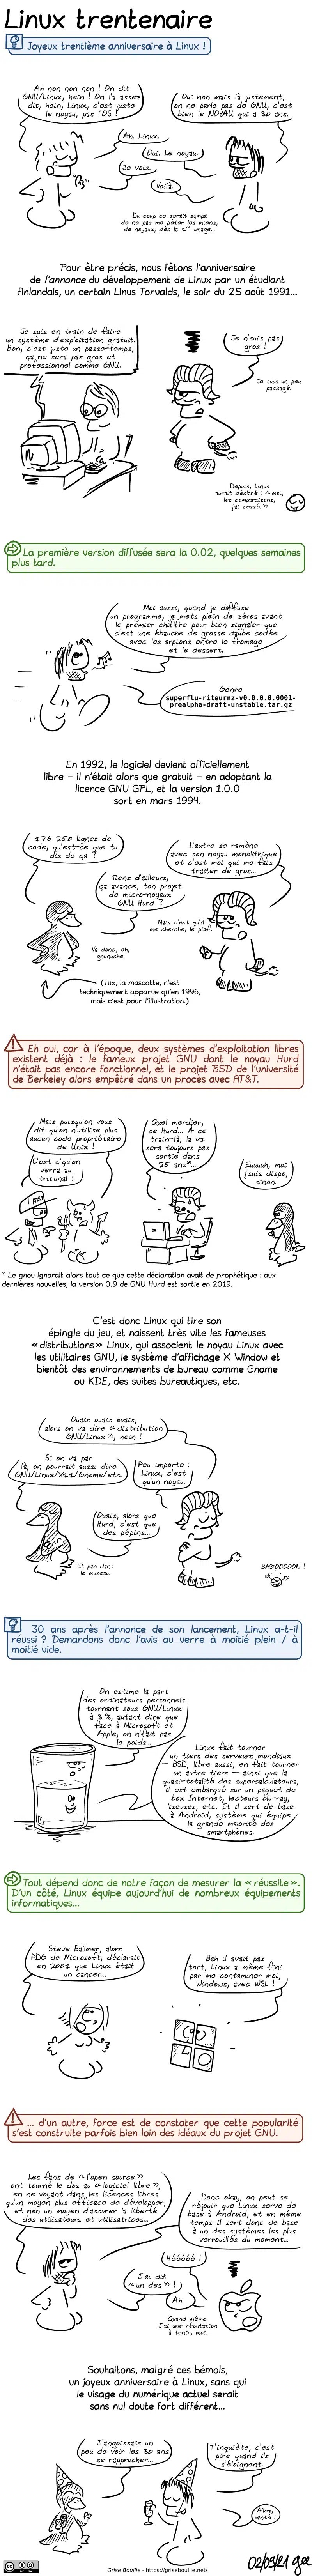 Linux trentenaire
Joyeux trentième anniversaire à Linux !
Ah non non non ! On dit
GNU/Linux, hein ! On l'a assez
dit, hein, Linux, c'est juste
le noyau, pas l'OS !
Oui non mais là justement,
on ne parle pas de GNU, c'est
bien le NOYAU qui a 30 ans.
Ah. Linux.
Oui. Le noyau.
Je vois.
Voilà.
Du coup ce serait sympa
de ne pas me péter les miens,
de noyaux, dès la 1re image...
Pour être précis, nous fêtons l'anniversaire
de l'annonce du développement de Linux par un étudiant
finlandais, un certain Linus Torvalds, le soir du 25 août 1991...
Je suis en train de faire
un système d'exploitation gratuit.
Bon, c'est juste un passe-temps,
ça ne sera pas gros et
professionnel comme GNU.
Je n'suis pas
gros !
Je suis un peu
packagé.
Depuis, Linus
aurait déclaré : « moi,
les comparaisons,
j'ai cessé. »
La première version diffusée sera la 0.02, quelques semaines
plus tard.
Moi aussi, quand je diffuse
un programme, je mets plein de zéros avant
le premier chiffre pour bien signaler que
c'est une ébauche de grosse daube codée
avec les arpions entre le fromage
et le dessert.
Genre
superflu-riteurnz-v0.0.0.0.0001-
prealpha-draft-unstable.tar.gz
En 1992, le logiciel devient officiellement
libre – il n'était alors que gratuit – en adoptant la
licence GNU GPL, et la version 1.0.0
sort en mars 1994.
176 250 lignes de
code, qu'est-ce que tu
dis de ça ?
L'autre se ramène
avec son noyau monolithique
et c'est moi qui me fais
traiter de gros...
Tiens d'ailleurs,
ça avance, ton projet
de micro-noyaux
GNU Hurd ?
Mais c'est qu'il
me cherche, le piaf.
Va donc, eh,
manchot.
(Tux, la mascotte, n'est
techniquement apparue qu'en 1996,
mais c'est pour l'illustration.)
Eh oui, car à l'époque, deux systèmes d'exploitation libres
existent déjà : le fameux projet GNU dont le noyau Hurd
n'était pas encore fonctionnel, et le projet BSD de l'université
de Berkeley alors empêtré dans un procès avec AT&T.
Mais puisqu'on vous
dit qu'on n'utilise plus
aucun code propriétaire
de Unix !
C'est c'qu'on
verra au
tribunal !
Quel merdier,
ce Hurd... À ce
train-là, la v1
sera toujours pas
sortie dans
25 ans*...
Euuuh, moi
j'suis dispo,
sinon.
* Le gnou ignorait alors tout ce que cette déclaration avait de prophétique : aux
dernières nouvelles, la version 0.9 de GNU Hurd est sortie en 2019.
C'est donc Linux qui tire son
épingle du jeu, et naissent très vite les fameuses
« distributions » Linux, qui associent le noyau Linux avec
les utilitaires GNU, le système d'affichage X Window et
bientôt des environnements de bureau comme Gnome
ou KDE, des suites bureautiques, etc.
Ouais ouais ouais,
alors on va dire « distribution
GNU/Linux », hein !
Si on va par
là, on pourrait aussi dire
GNU/Linux/X11/Gnome/etc.
Peu importe :
Linux, c'est
qu'un noyau.
Ouais, alors que
Hurd, c'est que
des pépins...
Et pan dans
le museau.
BASTOOOOON !
30 ans après l'annonce de son lancement, Linux a-t-il
réussi ? Demandons donc l'avis au verre à moitié plein / à
moitié vide.
On estime la part
des ordinateurs personnels
tournant sous GNU/Linux
à 3 %, autant dire que
face à Microsoft et
Apple, on n'fait pas
le poids...
Linux fait tourner
un tiers des serveurs mondiaux
— BSD, libre aussi, en fait tourner
un autre tiers — ainsi que la
quasi-totalité des supercalculateurs,
il est embarqué sur un paquet de
box Internet, lecteurs blu-ray,
liseuses, etc. Et il sert de base
à Android, système qui équipe
la grande majorité des
smartphones.
Tout dépend donc de notre façon de mesurer la « réussite ».
D'un côté, Linux équipe aujourd'hui de nombreux équipements
informatiques...
Steve Ballmer, alors
PDG de Microsoft, déclarait
en 2001 que Linux était
un cancer...
Bah il avait pas
tort, Linux a même fini
par me contaminer moi,
Windows, avec WSL !
... d'un autre, force est de constater que cette popularité
s'est construite parfois bien loin des idéaux du projet GNU.
Les fans de « l'open source »
ont tourné le dos au « logiciel libre »,
en ne voyant dans les licences libres
qu'un moyen plus efficace de développer,
et non un moyen d'assurer la liberté
des utilisateurs et utilisatrices...
Donc okay, on peut se
réjouir que Linux serve de
base à Android, et en même
temps il sert donc de base
à un des systèmes les plus
verrouillés du moment...
Héééééé !
J'ai dit
« un des » !
Ah.
Quand même.
J'ai une réputation
à tenir, moi.
Souhaitons, malgré ces bémols,
un joyeux anniversaire à Linux, sans qui
le visage du numérique actuel serait
sans nul doute fort différent...
J'angoissais un
peu de voir les 30 ans
se rapprocher...
T'inquiète, c'est
pire quand ils
s'éloignent.
Allez,
santé !
02/09/21 gee
Grise Bouille - https://grisebouille.net/